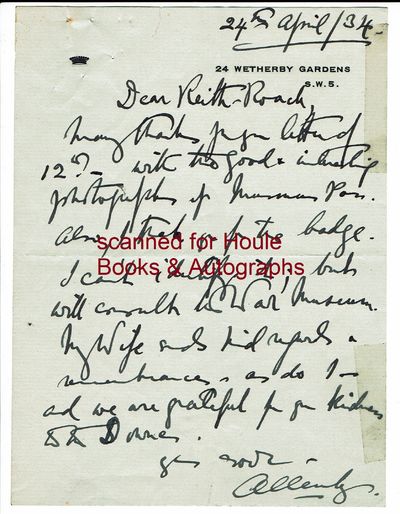 24th April/34-
24 WETHERBY GARDENS
S.W.5.
Dear Keith-Roach,
Many thanks for yr letter of
12th - with the good & interesting
photographs of Musmus Pass.
Also, thank you for the badge.
scanned for Houle
Books & Autographs
I can't identify it; but
will consult the War Museum.
My Wife sends kind regards &
remembrances, as do I -
and we are grateful for yr kindness
to Downes.
yrs
Allenby